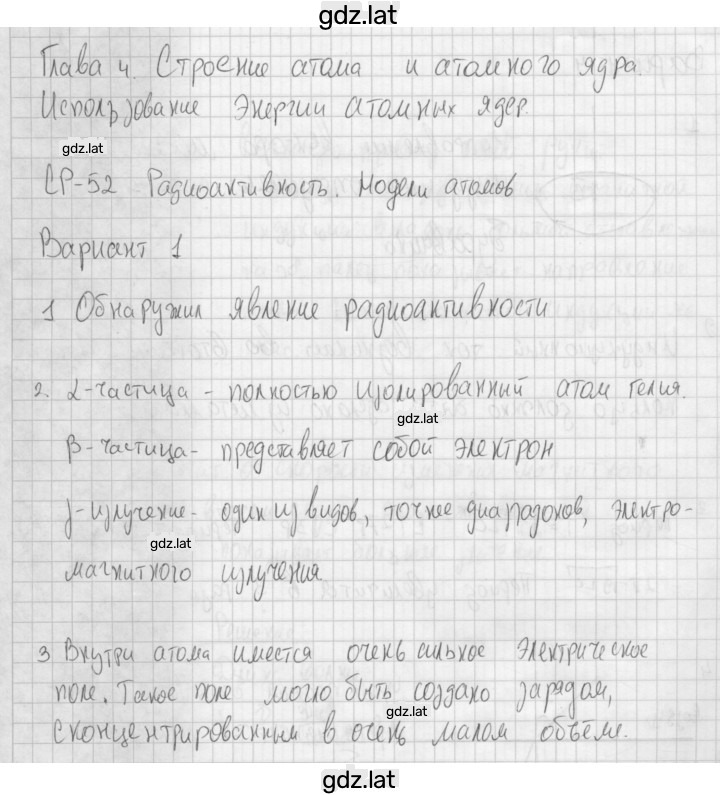 gdz.lat
Глава 4. Строение атома и атомного ядра.
Использование энергии атомных ядер.
gdz.lat
СР-52 Радиоактивность. Модели атомов
Вариант 1
1 Обнаружил явление радиоактивности
2. α-частица - полностью изолированный атом гелия.
gdz.lat
β-частица- представляет собой электрон
γ-излучение- один из видов, точнее диапазонов, электро-
gdz.lat
магнитного излучения
3 Внутри атома имеется очень сильное электрическое
поле. Такое поле могло быть создано зарядом,
gdz.lat
сконцентрированным в очень малом объёме.
gdz.lat